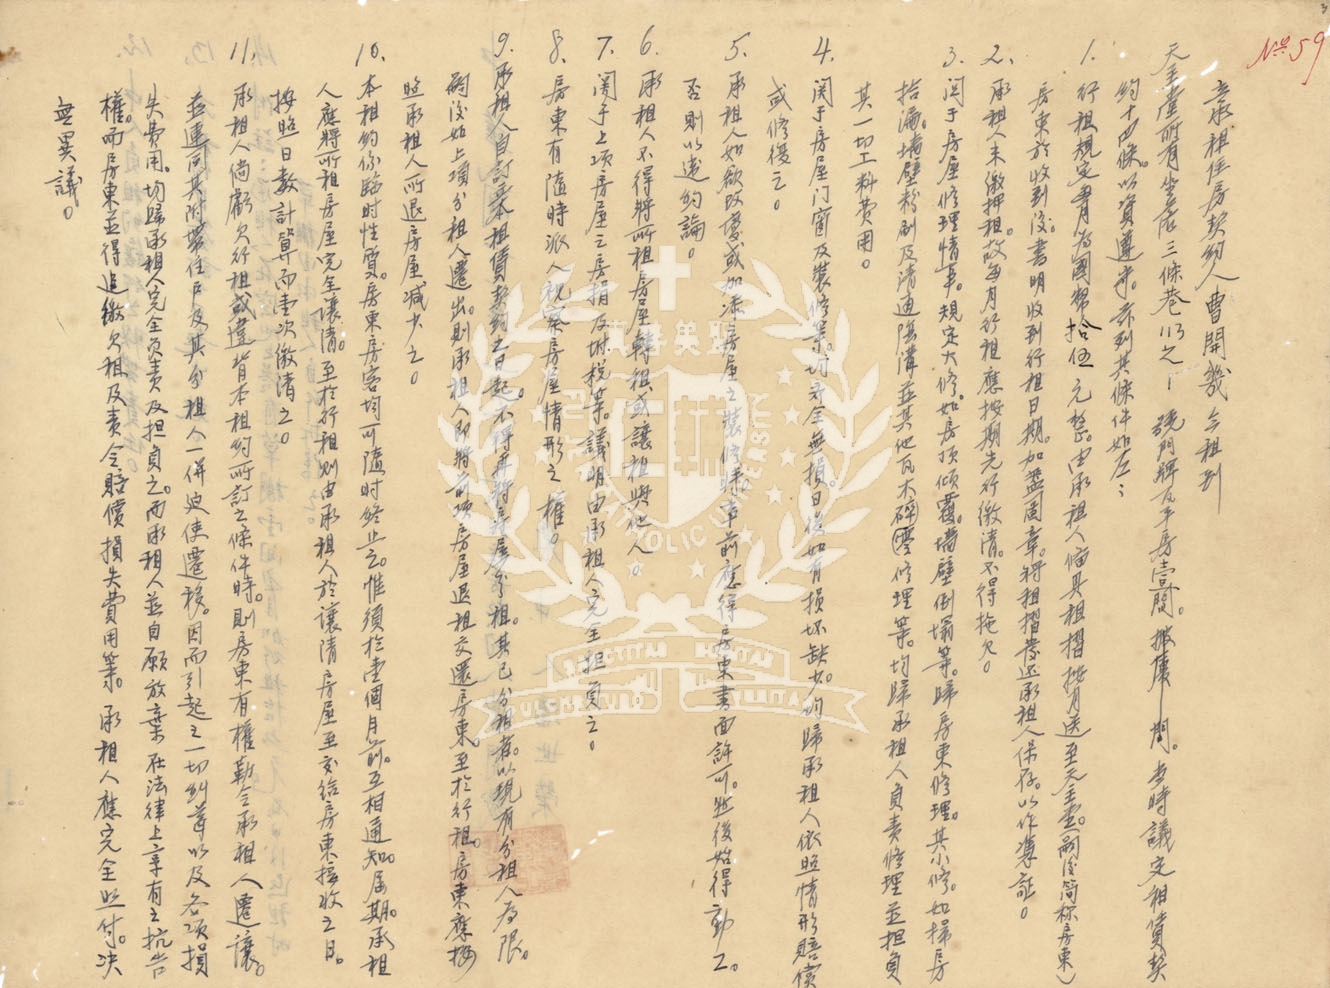 No 59
立承租住房契約人曹開幾今租到
天主堂所有坐落三條巷113之1號門牌瓦平房壹間。披廈一間。當時議定租賃契
約十四條。以資遵守。茲列其條件如左：
1. 行租規定每月為國幣拾伍元整。由承租人備具租摺按月送至天主堂。(嗣後簡稱房東)
房東於收到後。書明收到行租日期。加蓋圖章。將租摺發還承租人保存。以作準証。
2. 承租人未繳押租。故每月行租應按期先行繳清。不得拖欠。
3. 関于房屋修理情事。規定大修。如房頂傾覆。墻壁倒塌等。歸房東修理。其小修。如掃房
拾漏。墻壁粉刷及清通陰溝並其他瓦木磚零修理等。均歸承租人負責修理並担負
其一切工料費用。
4. 関于房屋门窗及裝修等。均齐全無損。日後如有損坏缺少。均歸承租人依照情形賠償
或修復之。
5. 承租人如欲改變或加添房屋之裝修。事前應得房東書面許可。然後始得動工。
否則以違約論。
6. 承租人不得將所租房屋轉租。或讓租與他人。
7. 関于上項房屋之房捐及附稅等。議明由承租人完全担負之。
8. 房東有隨時派人視察房屋情形之權。
9. 承租人自訂立本租賃契約之日起。不得再將房屋分租。其已分租者。以現有分租人為限。
嗣後如上項分租人遷出。則承租人即將前項房屋退租交還房東。至於行租。房東應按
照承租人所退房屋減少之。
10. 本租約係臨時性質。房東房客均可隨时終止之。惟須於壹個月前。互相通知。届期。承租
人應將所租房屋完全讓清。至於行租。則由承租人於讓清房屋至交給房東接收之日。
按照日數計算而壹次繳清之。
11. 承租人倘虧欠行租或違背本租約所訂之條件時。則房東有權勒令承租人遷讓。
並連同其附帶住戶及其分租人一併迫使遷移。因而引起之一切糾葛以及各項損
失費用。均歸承租人完全负责及担負之。而承租人並自願放棄在法律上享有之抗告
權。而房東並得追繳欠租及責令賠償損失費用等。承租人應完全照付。决
無異議。